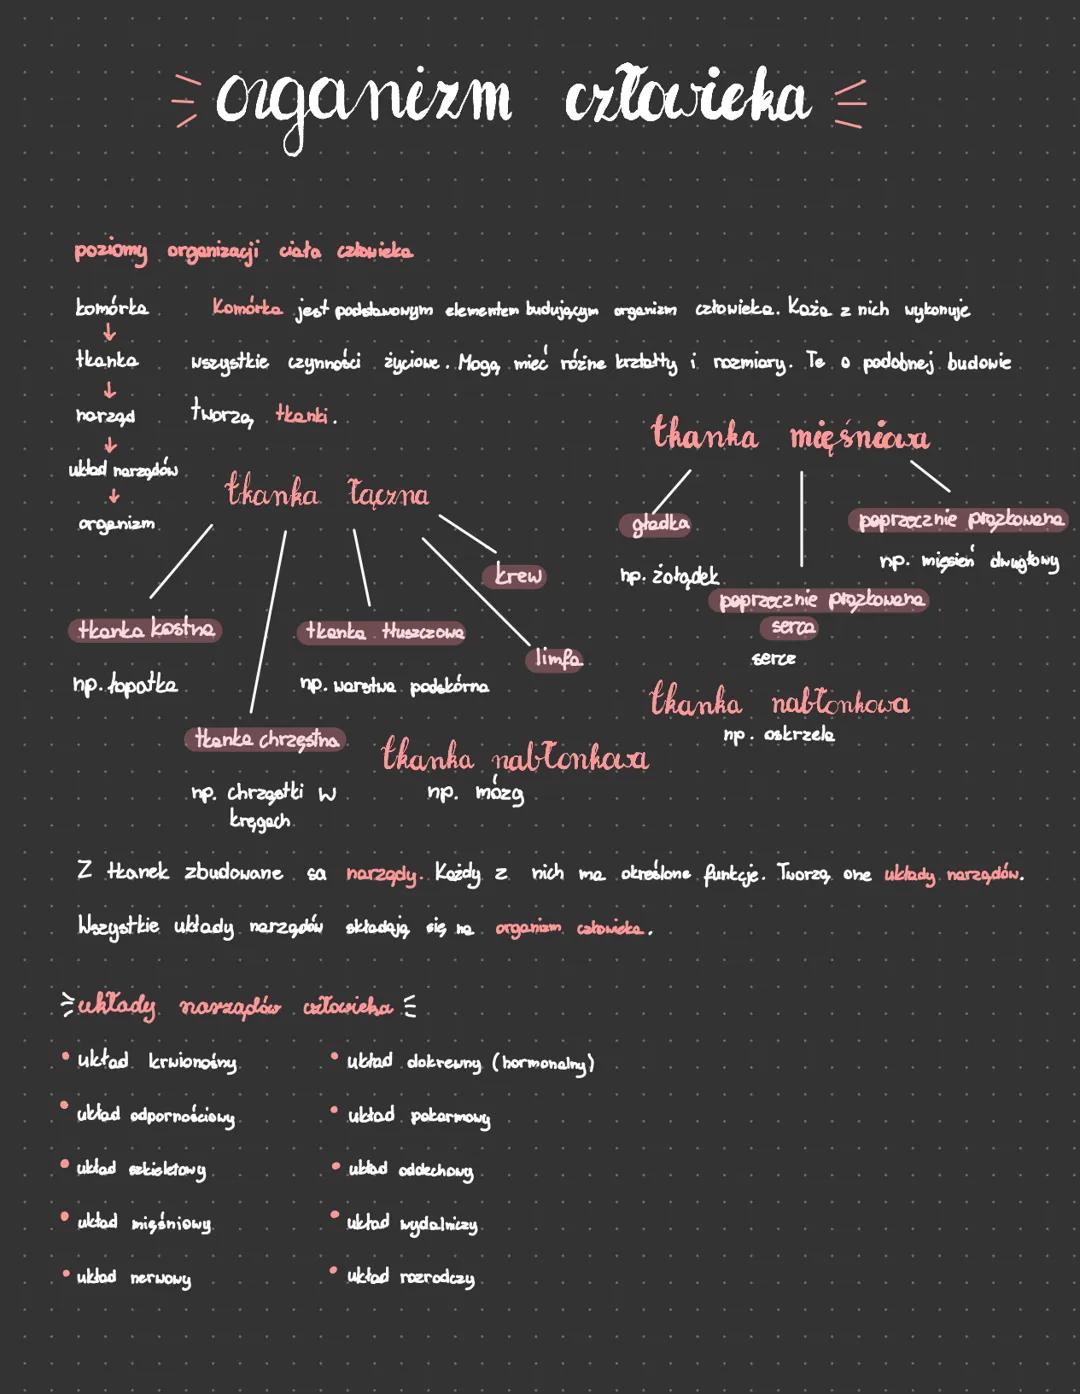 organizm człowieka
poziomy organizacji ciała człowieka
komórka
tkanka
narząd
układ narządów
organizm
Komórka jest podstawowym elementem budującym organizm człowieka. Każa z nich wykonuje
wszystkie czynności życiowe. Mogą mieć różne kształty i rozmiary. Te o podobnej budowie
tworzą tkanki.
tkanka łączna
tkanka kostna
np. łopatka
tkanka chrzęstna
np. chrząstki w
kręgach
tkanka tłuszczowa
np. warstwa podskórna
limfa
krew
tkanka mięśniowa
gładka
np. żołądek
poprzecznie prążkowana
serca
serce
poprzecznie prążkowana
np. mięsień dwugłowy
tkanka nabłonkowa
np. mózg
tkanka nabłonkowa
np. oskrzela
Z tkanek zbudowane sa narządy. Każdy z nich ma określone funkcje. Tworzą one układy narządów.
Wszystkie układy narządów składają się na organizm człowieka.
układy narządów człowieka
• układ krwionośny
• układ odpornościowy
• układ szkieletowy
• układ mięśniowy
• układ nerwowy
• układ dokrewny (hormonalny)
• układ pokarmowy
• układ oddechowy
• układ wydalniczy
• układ rozrodczy